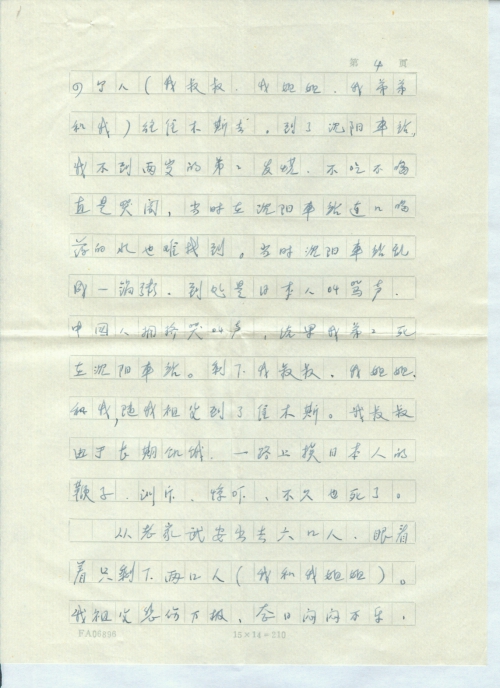 第 4 页
的个人（我叔叔．我姐姐．我弟弟
和我）往佳木斯去，到了沈阳车站，
我不到两岁的弟弟发烧．不吃不喝
直是哭闹，当时在沈阳车站连口喝
药的水也难找到。当时沈阳车站乱
成一锅粥．到处是日本人叫骂声．
中国人拥挤哭叫声，结果我弟弟死
在沈阳车站。剩下我叔叔，我姐姐．
和我，随我祖父到了佳木斯。我叔叔
由于长期饥饿．一路上挨日本人的
鞭子．训斥．惊吓、不久也死了。
从老家武安出去六口人．眼看
着只剩下两口人（我和我姐姐）。
我祖父悲伤万极，终日闷闷不乐．
FA06896
15×14=210